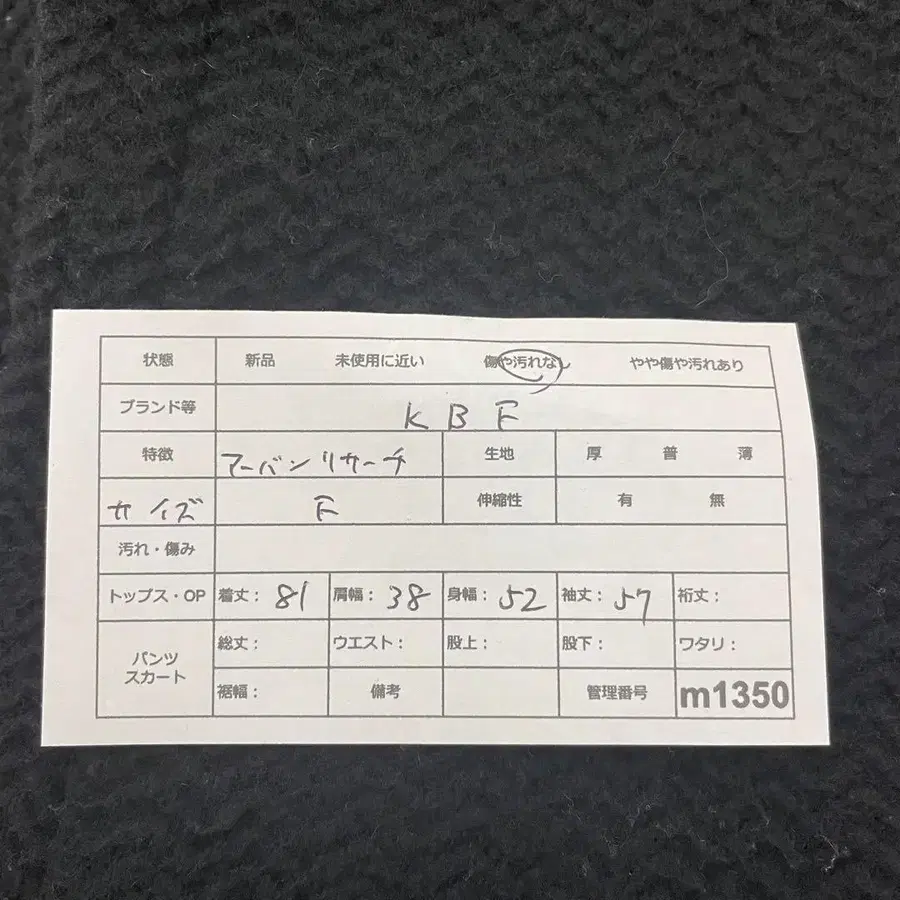 状態 新品 未使用に近い 傷や汚れなし やや傷や汚れあり
ブランド等 KBF
特徴 アーバンリサーチ 生地 厚 普 薄
サイズ F 伸縮性 有 無
汚れ・傷み
トップス・OP 着丈: 81 肩幅: 38 身幅: 52 袖丈: 57 裄丈:
パンツ
スカート
総丈: ウエスト: 股上: 股下: ワタリ:
裾幅: 備考 管理番号 m1350